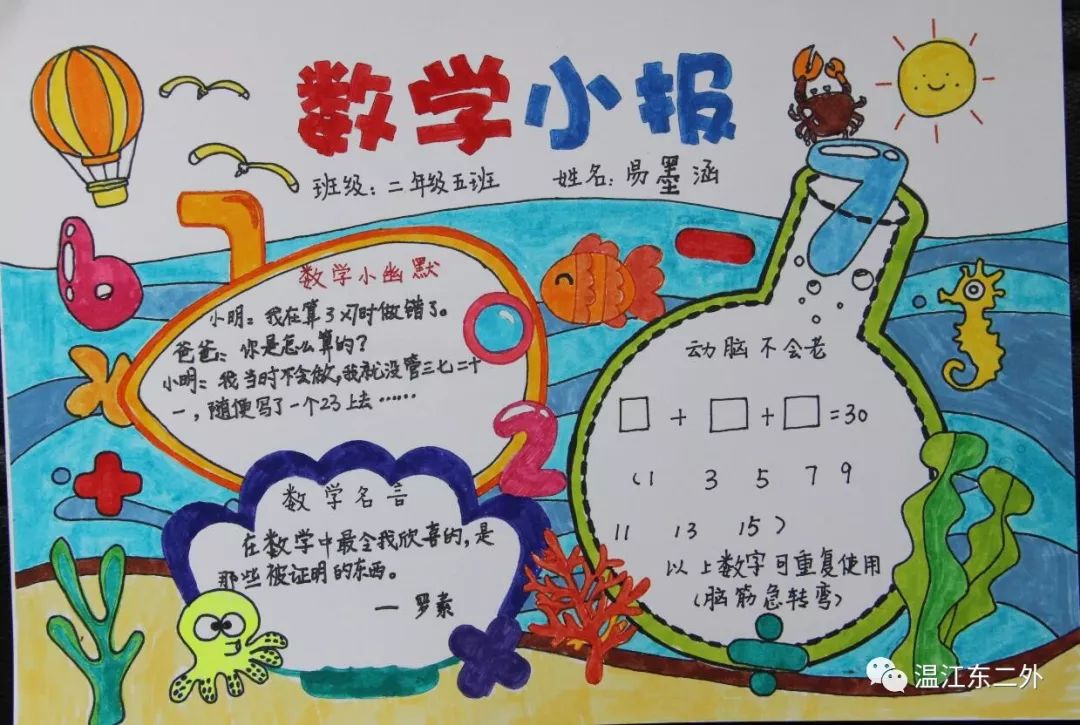 数学小报
班级：二年级五班 姓名：易墨涵
数学小幽默
小明：我在算3×7时做错了。
爸爸：你是怎么算的？
小明：我当时不会做，我就没管三七二十
一，随便写了一个23上去……
数学名言
在数学中最令我欣喜的，是
那些被证明的东西。
—罗素
动脑不会老
□ + □ + □ = 30
(1 3 5 7 9
11 13 15)
以上数字可重复使用
(脑筋急转弯)
6
7
2
7
温江东二外